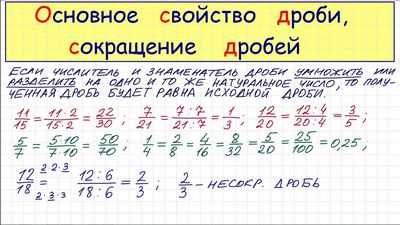 Основное свойство дроби,
сокращение дробей
Если числитель и знаменатель дроби умножить или
разделить на одно и то же натуральное число, то полу-
ченная дробь будет равна исходной дроби.
11/15 = 11·2/15·2 = 22/30 ; 7/21 = 7:7/21:7 = 1/3 ; 12/20 = 12:4/20:4 = 3/5 ;
5/7 = 5·10/7·10 = 50/70 ; 1/4 = 2/8 = 4/16 = 8/32 = 5/20 = 25/100 = 0,25 ;
2·2·3
12/18 = 12:6/18:6 = 2/3 ; 2/3 – несокр. дробь
2·3·3